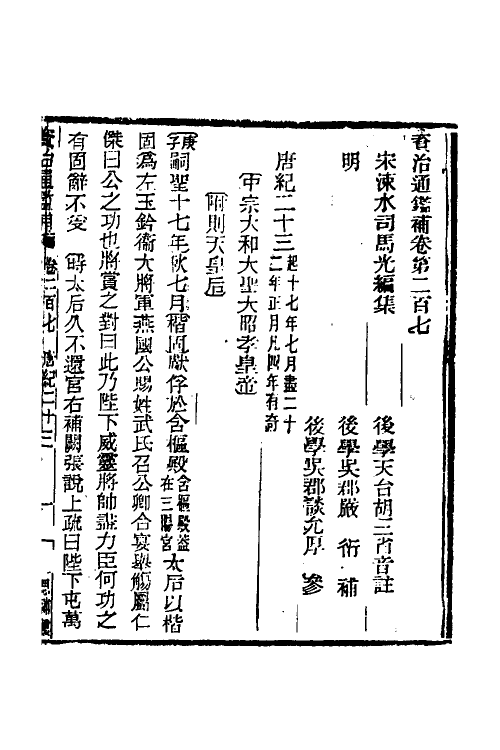 資治通鑑補卷第二百七
宋涑水司馬光編集
後學天台胡三省音註
明
後學吳郡嚴衍補
後學吳郡談允厚參
唐紀二十三 起十七年七月盡二十二年正月凡四年有奇
中宗大和大聖大昭孝皇帝
附則天皇后
庚子嗣聖十七年秋七月楷固獻俘於含樞殿 含樞殿蓋在三陽宮 太后以楷
固爲左玉鈐衛大將軍燕國公賜姓武氏召公卿合宴舉觴屬仁
傑曰公之功也將賞之對曰此乃陛下威靈將帥盡力臣何功之
有固辭不受 時太后久不還宮右補闕張說上疏曰陛下屯萬
資治通鑑補 卷二百七 唐紀二十三 一